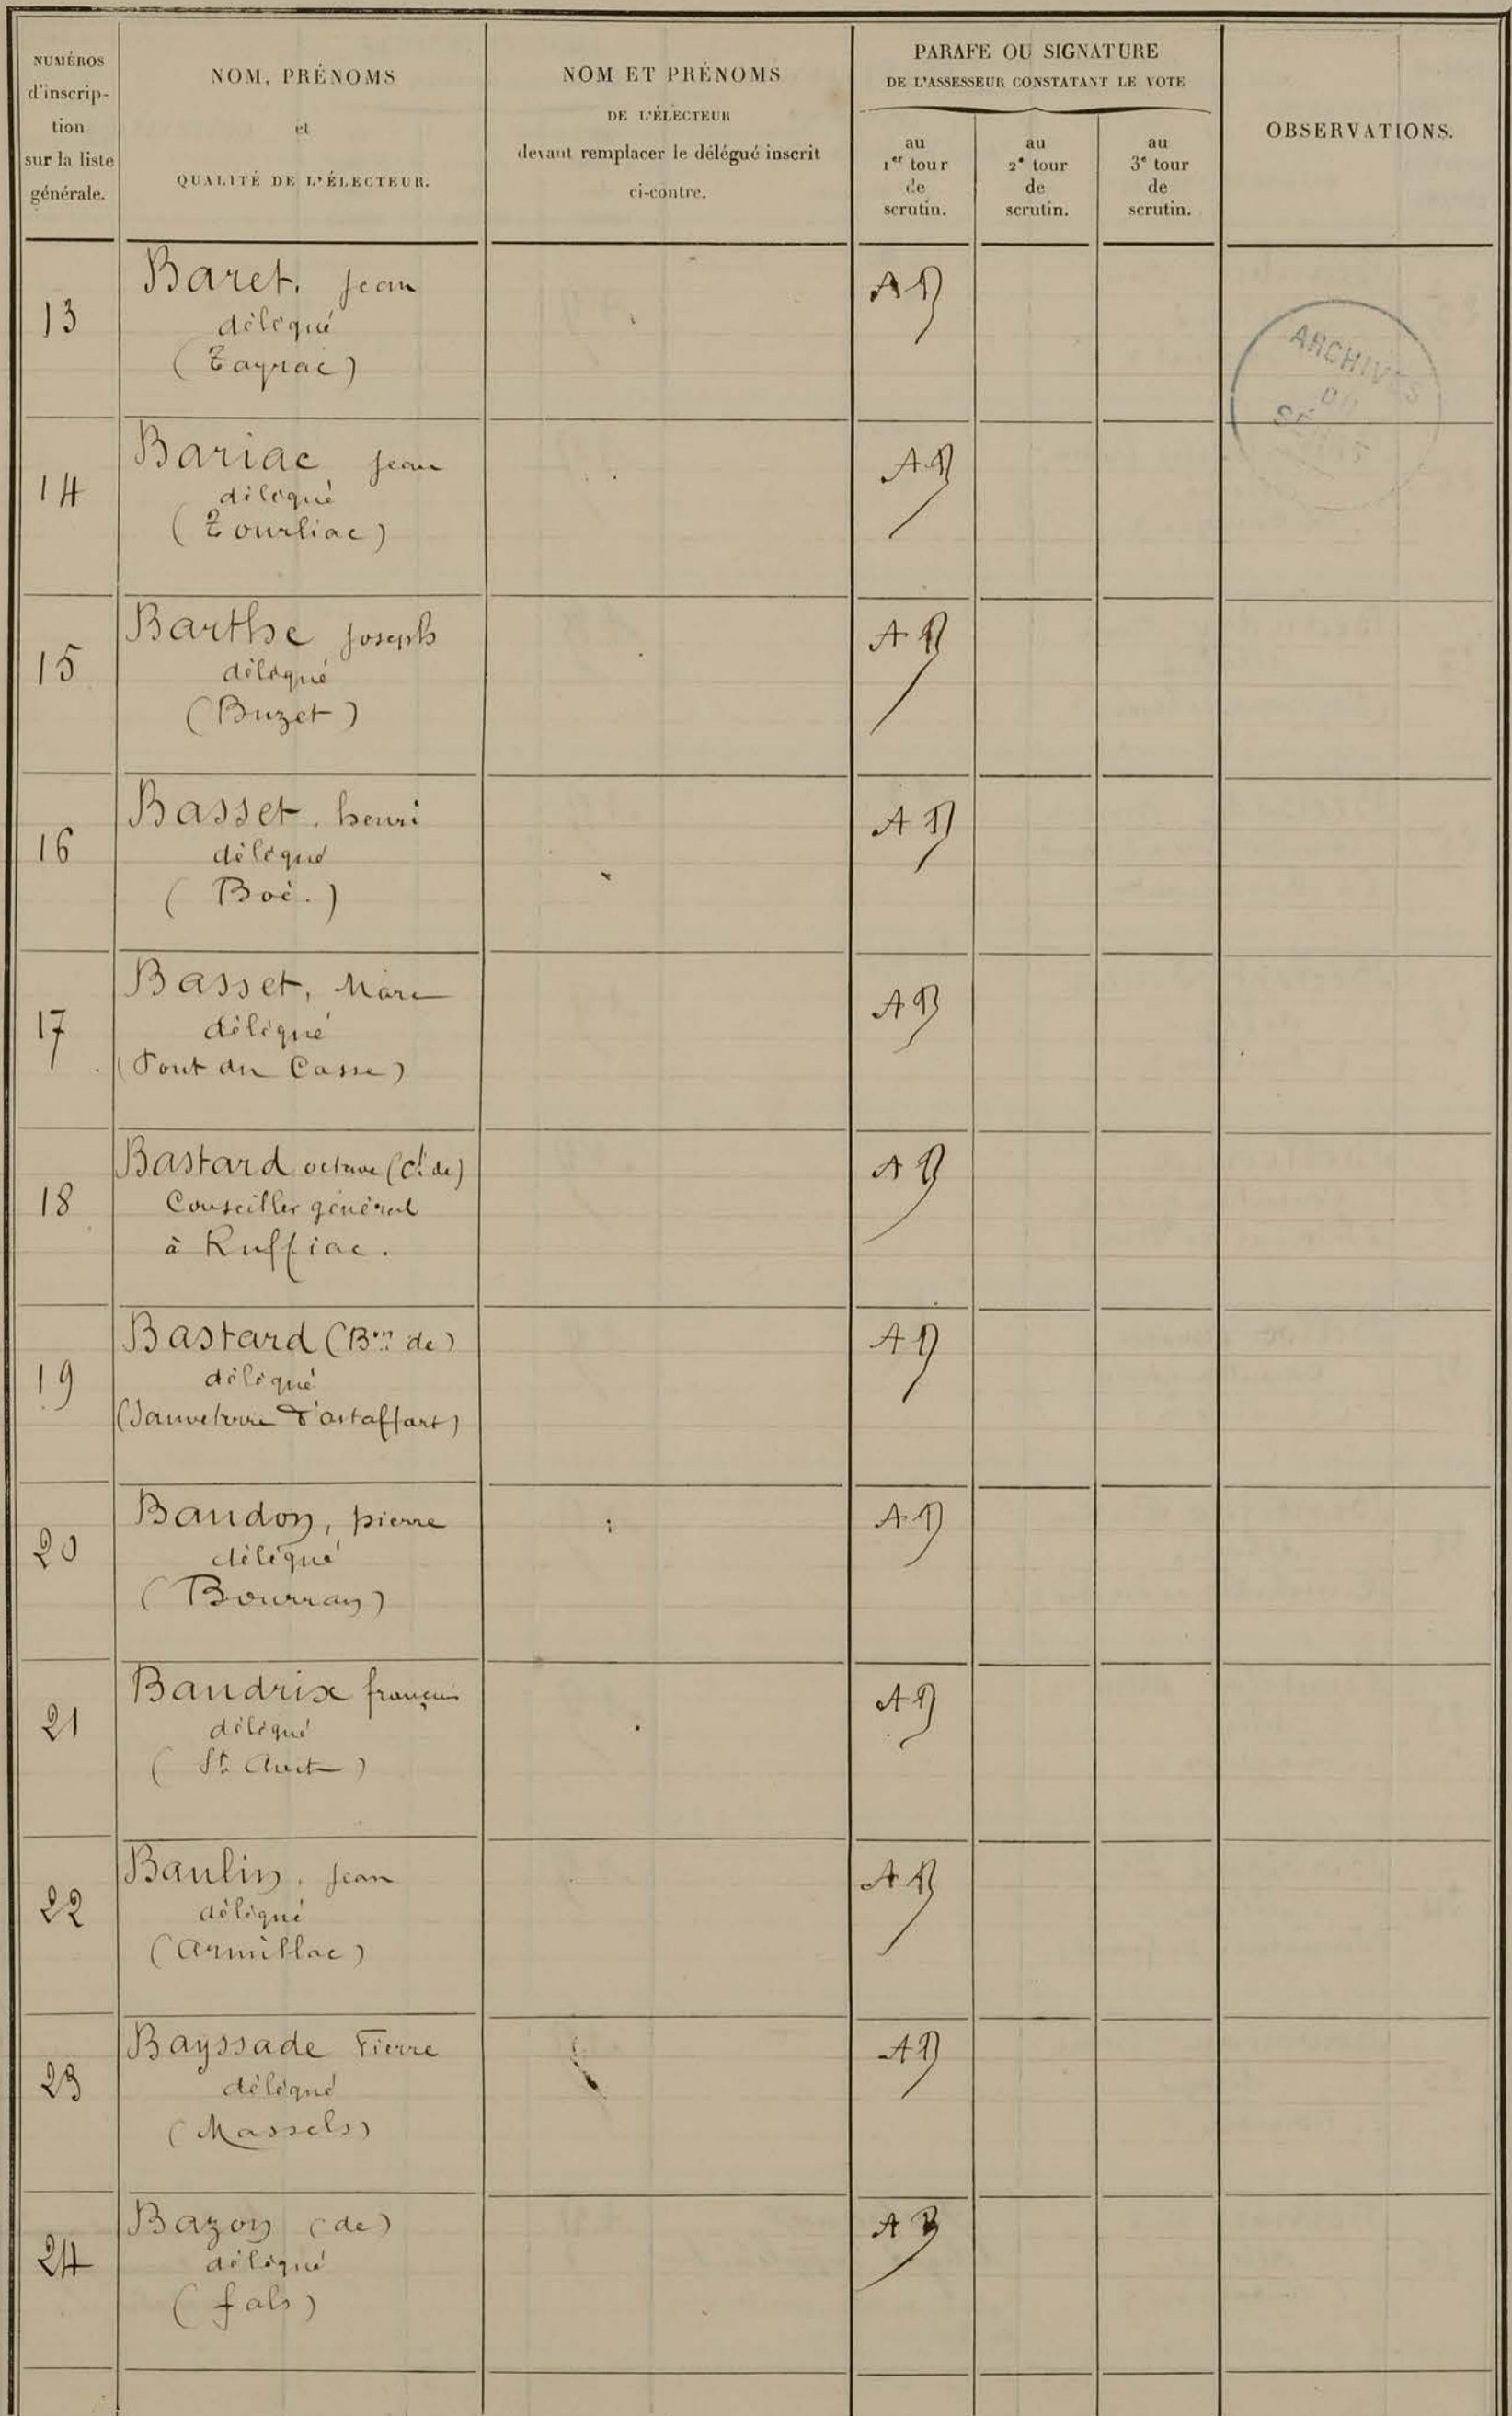 NUMÉROS
d'inscrip-
tion
sur la liste
générale.
NOM, PRÉNOMS
et
QUALITÉ DE L'ÉLECTEUR.
NOM ET PRÉNOMS
DE L'ÉLECTEUR
devant remplacer le délégué inscrit
ci-contre.
PARAFE OU SIGNATURE
DE L'ASSESSEUR CONSTATANT LE VOTE
au
1er tour
de
scrutin.
au
2e tour
de
scrutin.
au
3e tour
de
scrutin.
OBSERVATIONS.
13
Baret, Jean
délégué
(Tayrac)
AB
ARCHIVES
DU
SÉNAT
14
Bariac Jean
délégué
(Tourliac)
AB
15
Barthe Joseph
délégué
(Buzet)
AB
16
Basset, henri
délégué
(Boé.)
AB
17
Basset, Marc
délégué
(Pont du Casse)
AB
18
Bastard octave (Ct de)
Conseiller général
à Ruffiac.
AB
19
Bastard (Bon de)
délégué
(Sauveterre d'astaffort)
AB
20
Baudon, pierre
délégué
(Bourran)
AB
21
Baudrix françois
délégué
(St Avit)
AB
22
Baulin, Jean
délégué
(Armillac)
AB
23
Bayssade Pierre
délégué
(Massels)
AB
24
Bazon (de)
délégué
(fals)
AB